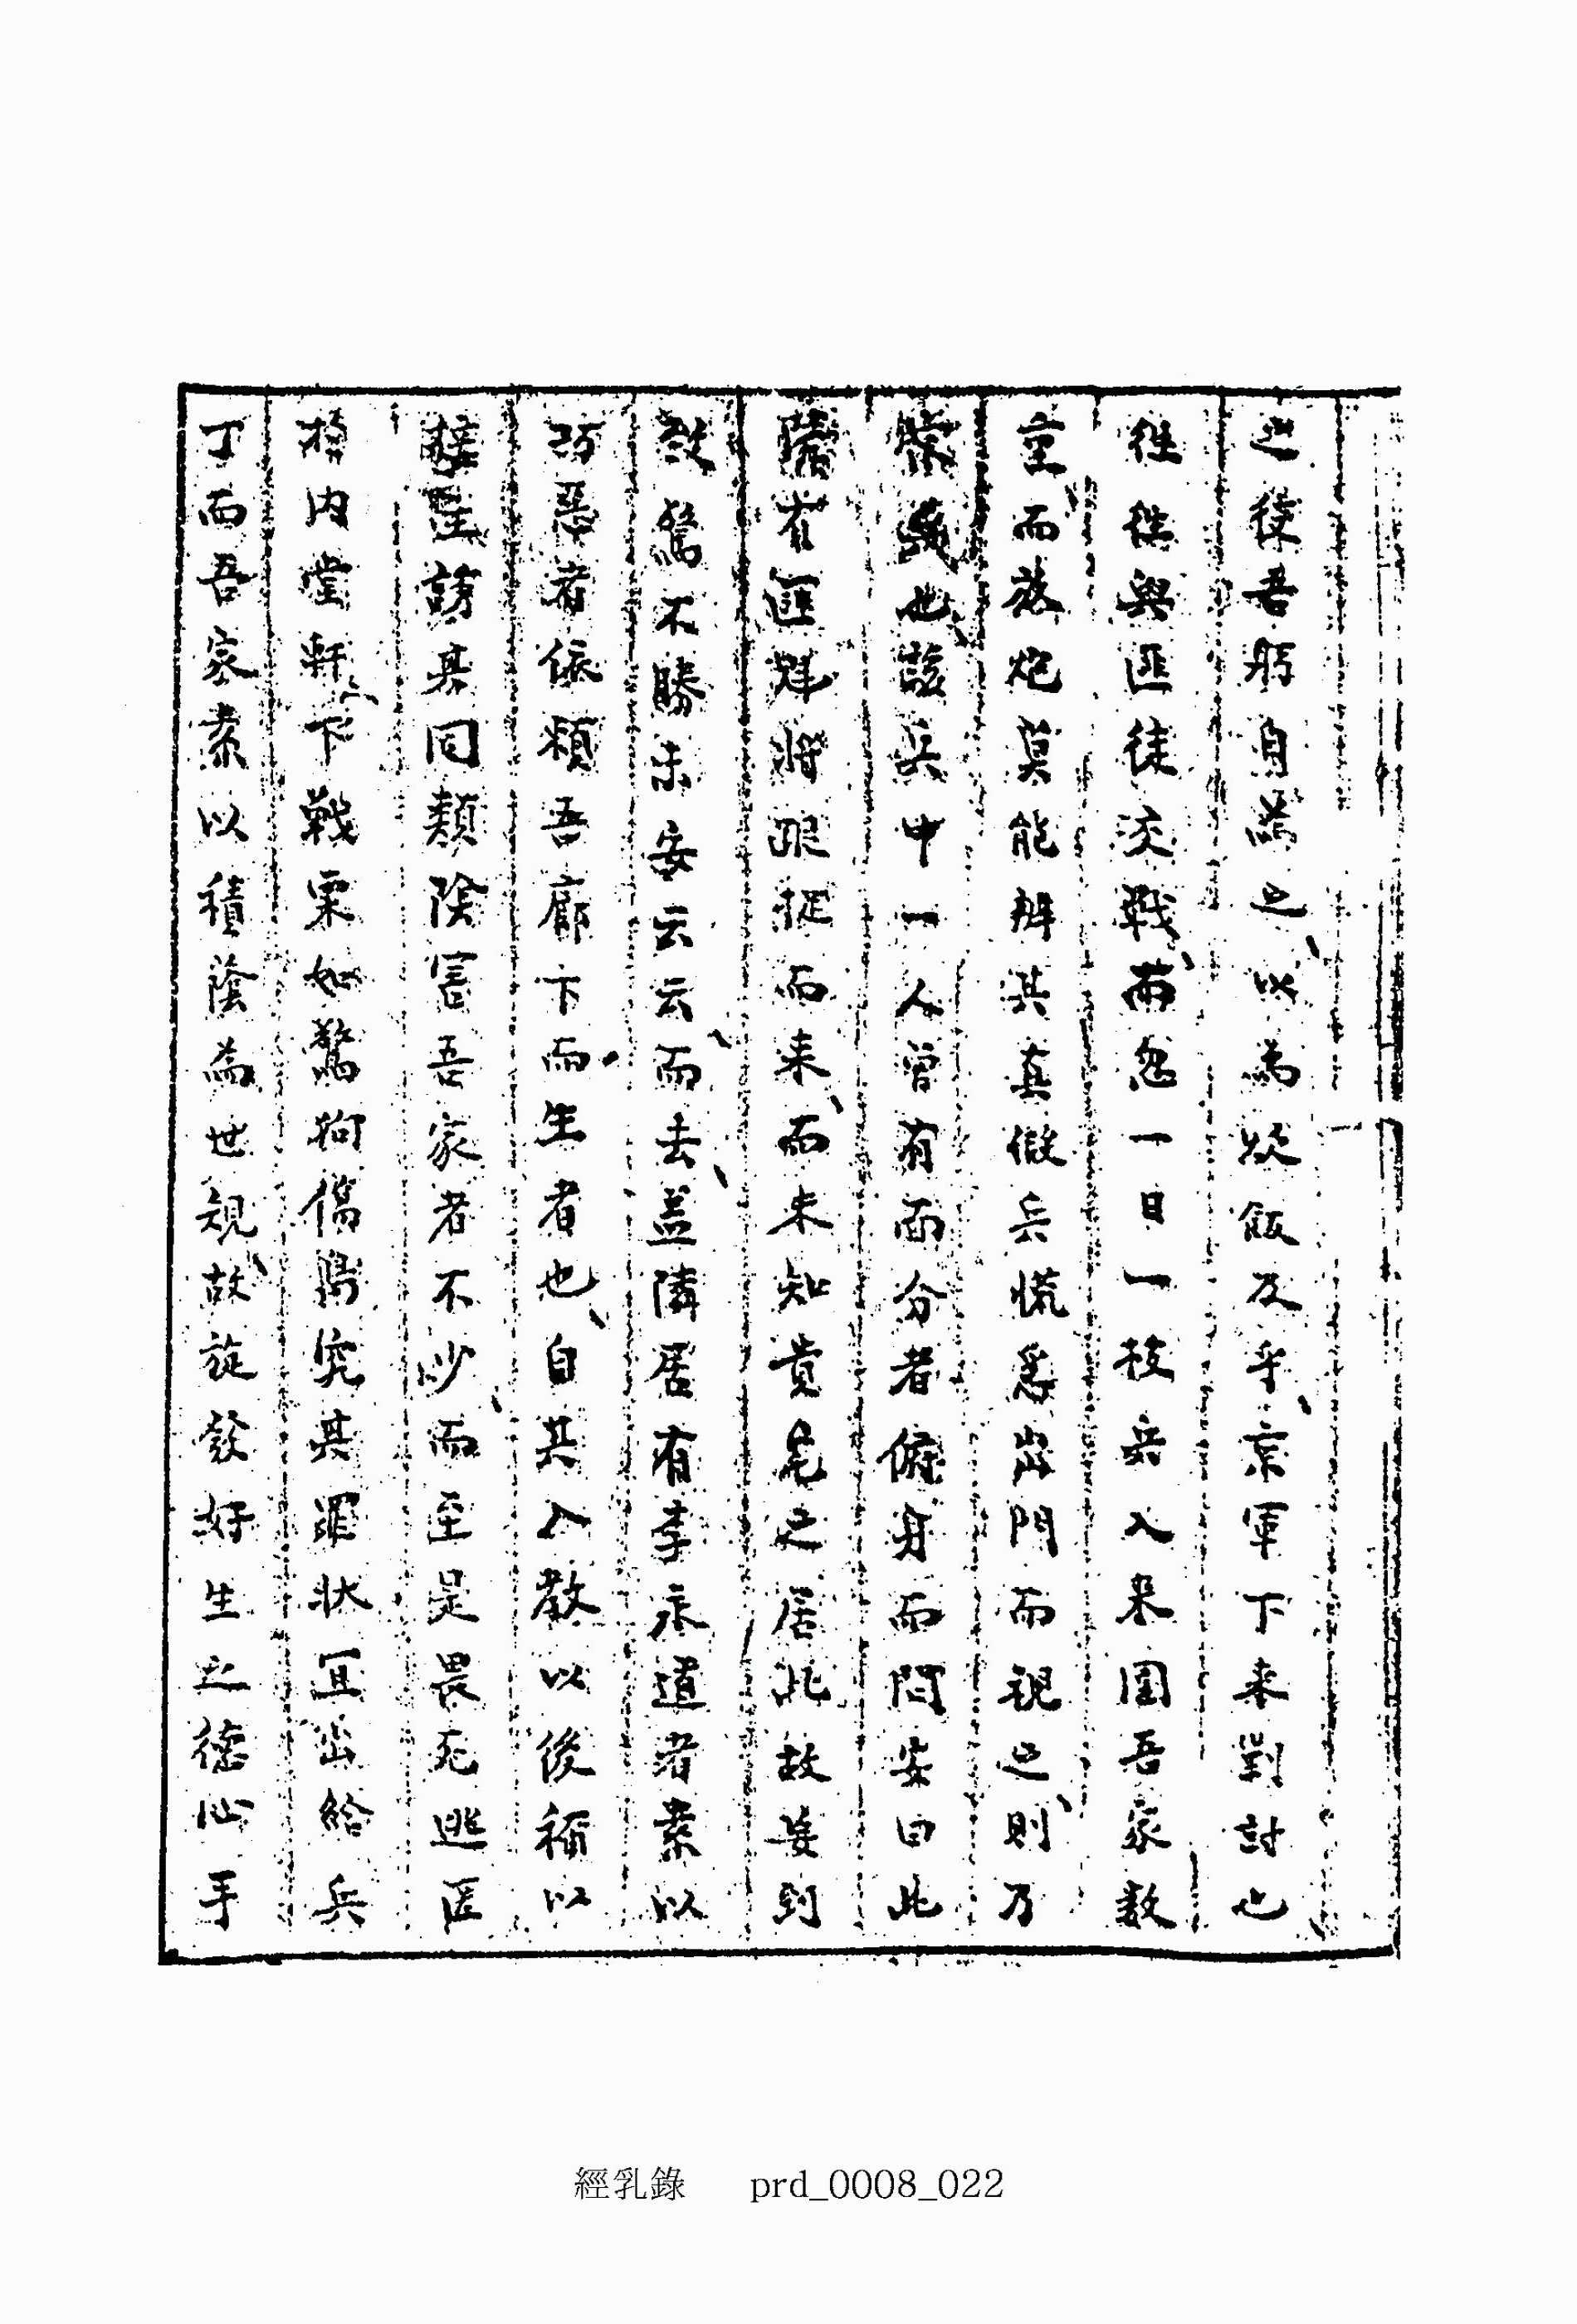 之後吾躬自當之以為炊飯及乎京軍下來對討也
往往與匪徒交戰而忽一日一枝兵入來圍吾家数
重而放炮莫能辨其真假兵慌忙出門而視之則乃
也該兵中一人曾有面分者俯身而問安曰此
隣有匪魁將跟捉而来而未知貴宅之居此故姜到
驚不勝未安云云而去盖隣居有李永道者素以
巧惡者依賴吾廊下而生者也自其入教以後稱以
接主誘其同類陰害吾家者不少而至是畏死逃匿
於內堂軒下戰栗如驚狗傷禽究其罪狀宜出給兵
丁而吾家素以積蔭為世規故旋發好生之德心手
經乳錄 prd_0008_022